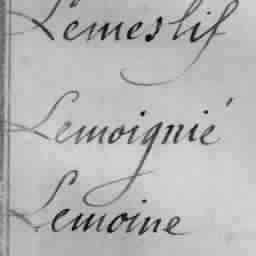 Lemeslif
Lemoignié
Lemoine